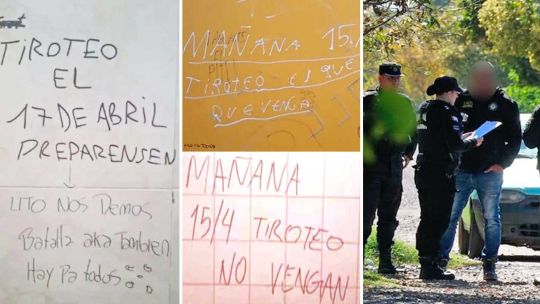 TIROTEO
EL
17 DE ABRIL
PREPARENSEN
LITO NOS Demos
Batalla aka También
Hay Pa todos
MAÑANA 15/
TIROTEO el QUE
QUE VENGA
MAÑANA
15/4 TIROTEO
NO VENGAN